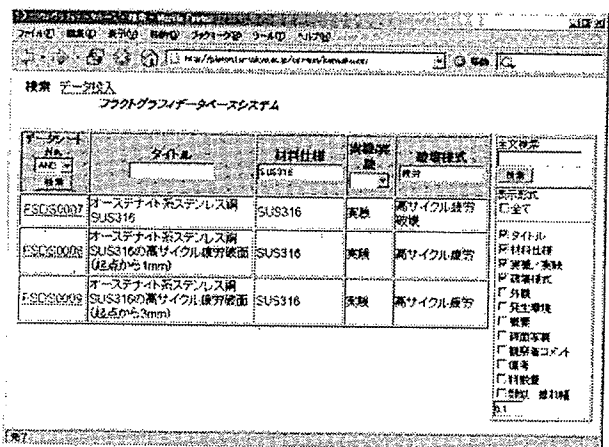 ファイル(F) 編集(E) 表示(V) 移動(G) ブックマーク(B) ツール(T) ヘルプ(H)
検索 データ投入
フラクトグラフィデータベースシステム
データシート No. タイトル 材料仕様 実機/実験 破壊様式
AND
検索
SUS316
疲労
FSDS0007 オーステナイト系ステンレス鋼 SUS316 SUS316 実験 高サイクル疲労破壊
FSDS0008 オーステナイト系ステンレス鋼SUS316の高サイクル疲労破面(起点から1mm) SUS316 実験 高サイクル疲労
FSDS0009 オーステナイト系ステンレス鋼SUS316の高サイクル疲労破面(起点から3mm) SUS316 実験 高サイクル疲労
全文検索
検索
表示形式
全て
タイトル
材料仕様
実機/実験
破壊様式
外観
発生環境
概要
破面写真
観察者コメント
備考
0.1
完了